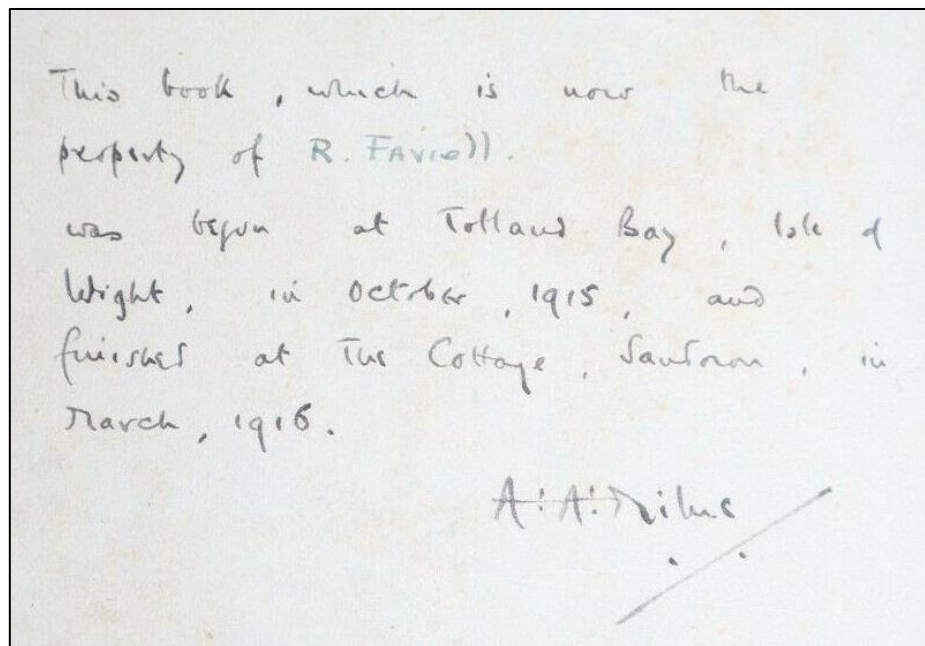 This book, which is now the
property of R. Faviell.
was begun at Totland Bay, Isle of
Wight, in October, 1915, and
finished at The Cottage, Sandown, in
March, 1916.
A. A. Milne